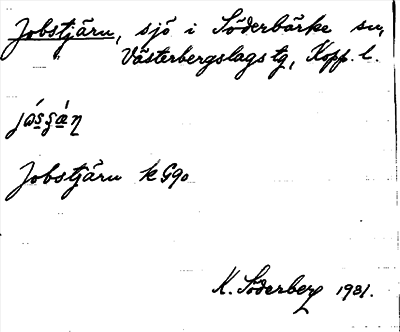 Jobstjärn, sjö i Söderbärke sn,
Västerbergslags tg, Kopp. l.
Jobstjärn k G90
K. Söderberg 1931.